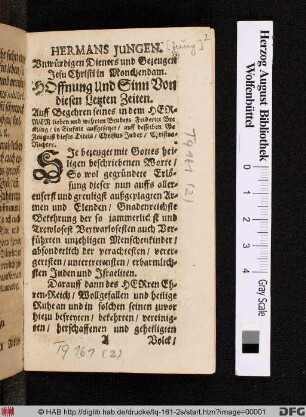 HERMANS JUNGEN.
[Jung]²
Unwürdigen Dieners und Gezeugen
Jesu Christi in Monckendam.
Hoffnung Und Sinn Von
diesen Lezten Zeiten.
Auff Begehren seines in dem HER-
REN lieben und wehrten Bruders Friderici Bre
ckling / in Einfalt auffgesetzet / auff desselben Ge
zeugniß dieses Titels / Christus Judex /
Richter.
Sie bezeuget mit Gottes hei-
ligen beschriebenen Worte /
So wol gegründete Erlö-
sung dieser nun auffs aller-
eusserst und grentigst außgeplagten Ar-
men und Elenden / Gnadenreichste
Bekehrung der so jammerlichst und
Trewlosest Verwarlosesten auch Ver-
führten unzehligen Menschenkinder /
absonderlich der verachtesten /
erbarmlich-
sten Juden und Israeliten.
Darauff dann des HErren Eh-
ren-Reich / Wollgefallen und heilige
Ruhe an und in solchen seinen zuvor
hiezu befreyeten / bekehrten / vereinig-
ten / herschaffenen und geheiligten
A Volck /
Tq 161 (2)
Tq 161 (2)
Herzog August Bibliothek
Wolfenbüttel
Gray Scale
© HAB http://diglib.hab.de/drucke/tq-161-2s/start.htm?image=00001
DFG